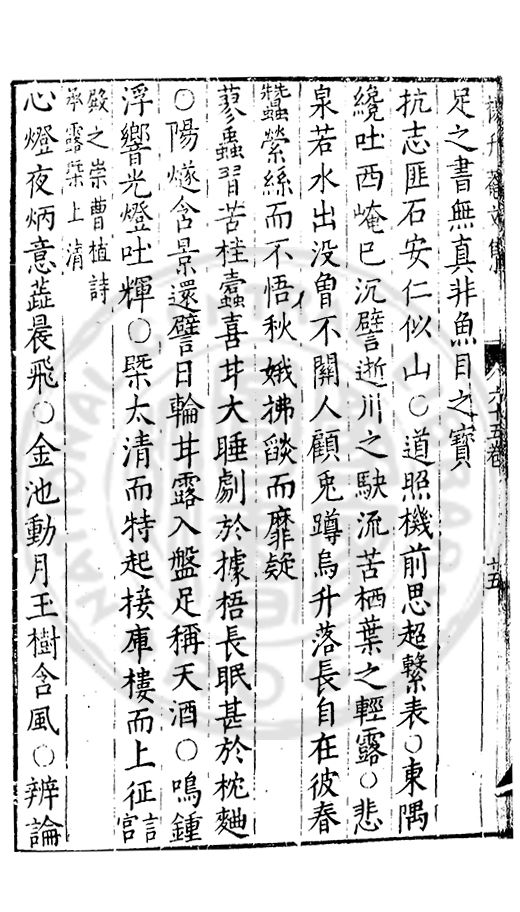 六十五卷
足之書無真非魚目之寶
抗志匪石安仁似山○道照機前思超繫表○東隅
纔吐西崦已沉譬逝川之駃流苦栖葉之輕露○悲
泉若水出没曾不關人顧兎蹲烏升落長自在彼春
蠶縈絲而不悟秋娥拂燄而靡疑
蓼蟲習苦桂蠹喜甘大睡劇於據梧長眠甚於枕麯
○陽燧含景還譬日輪甘露入盤足稱天酒○鳴鍾
浮響光燈吐輝○槩太清而特起接庫樓而上征言宫
殿之崇曹植詩
承露槩上清
心燈夜炳意蕋晨飛○金池動月王樹含風○辨論